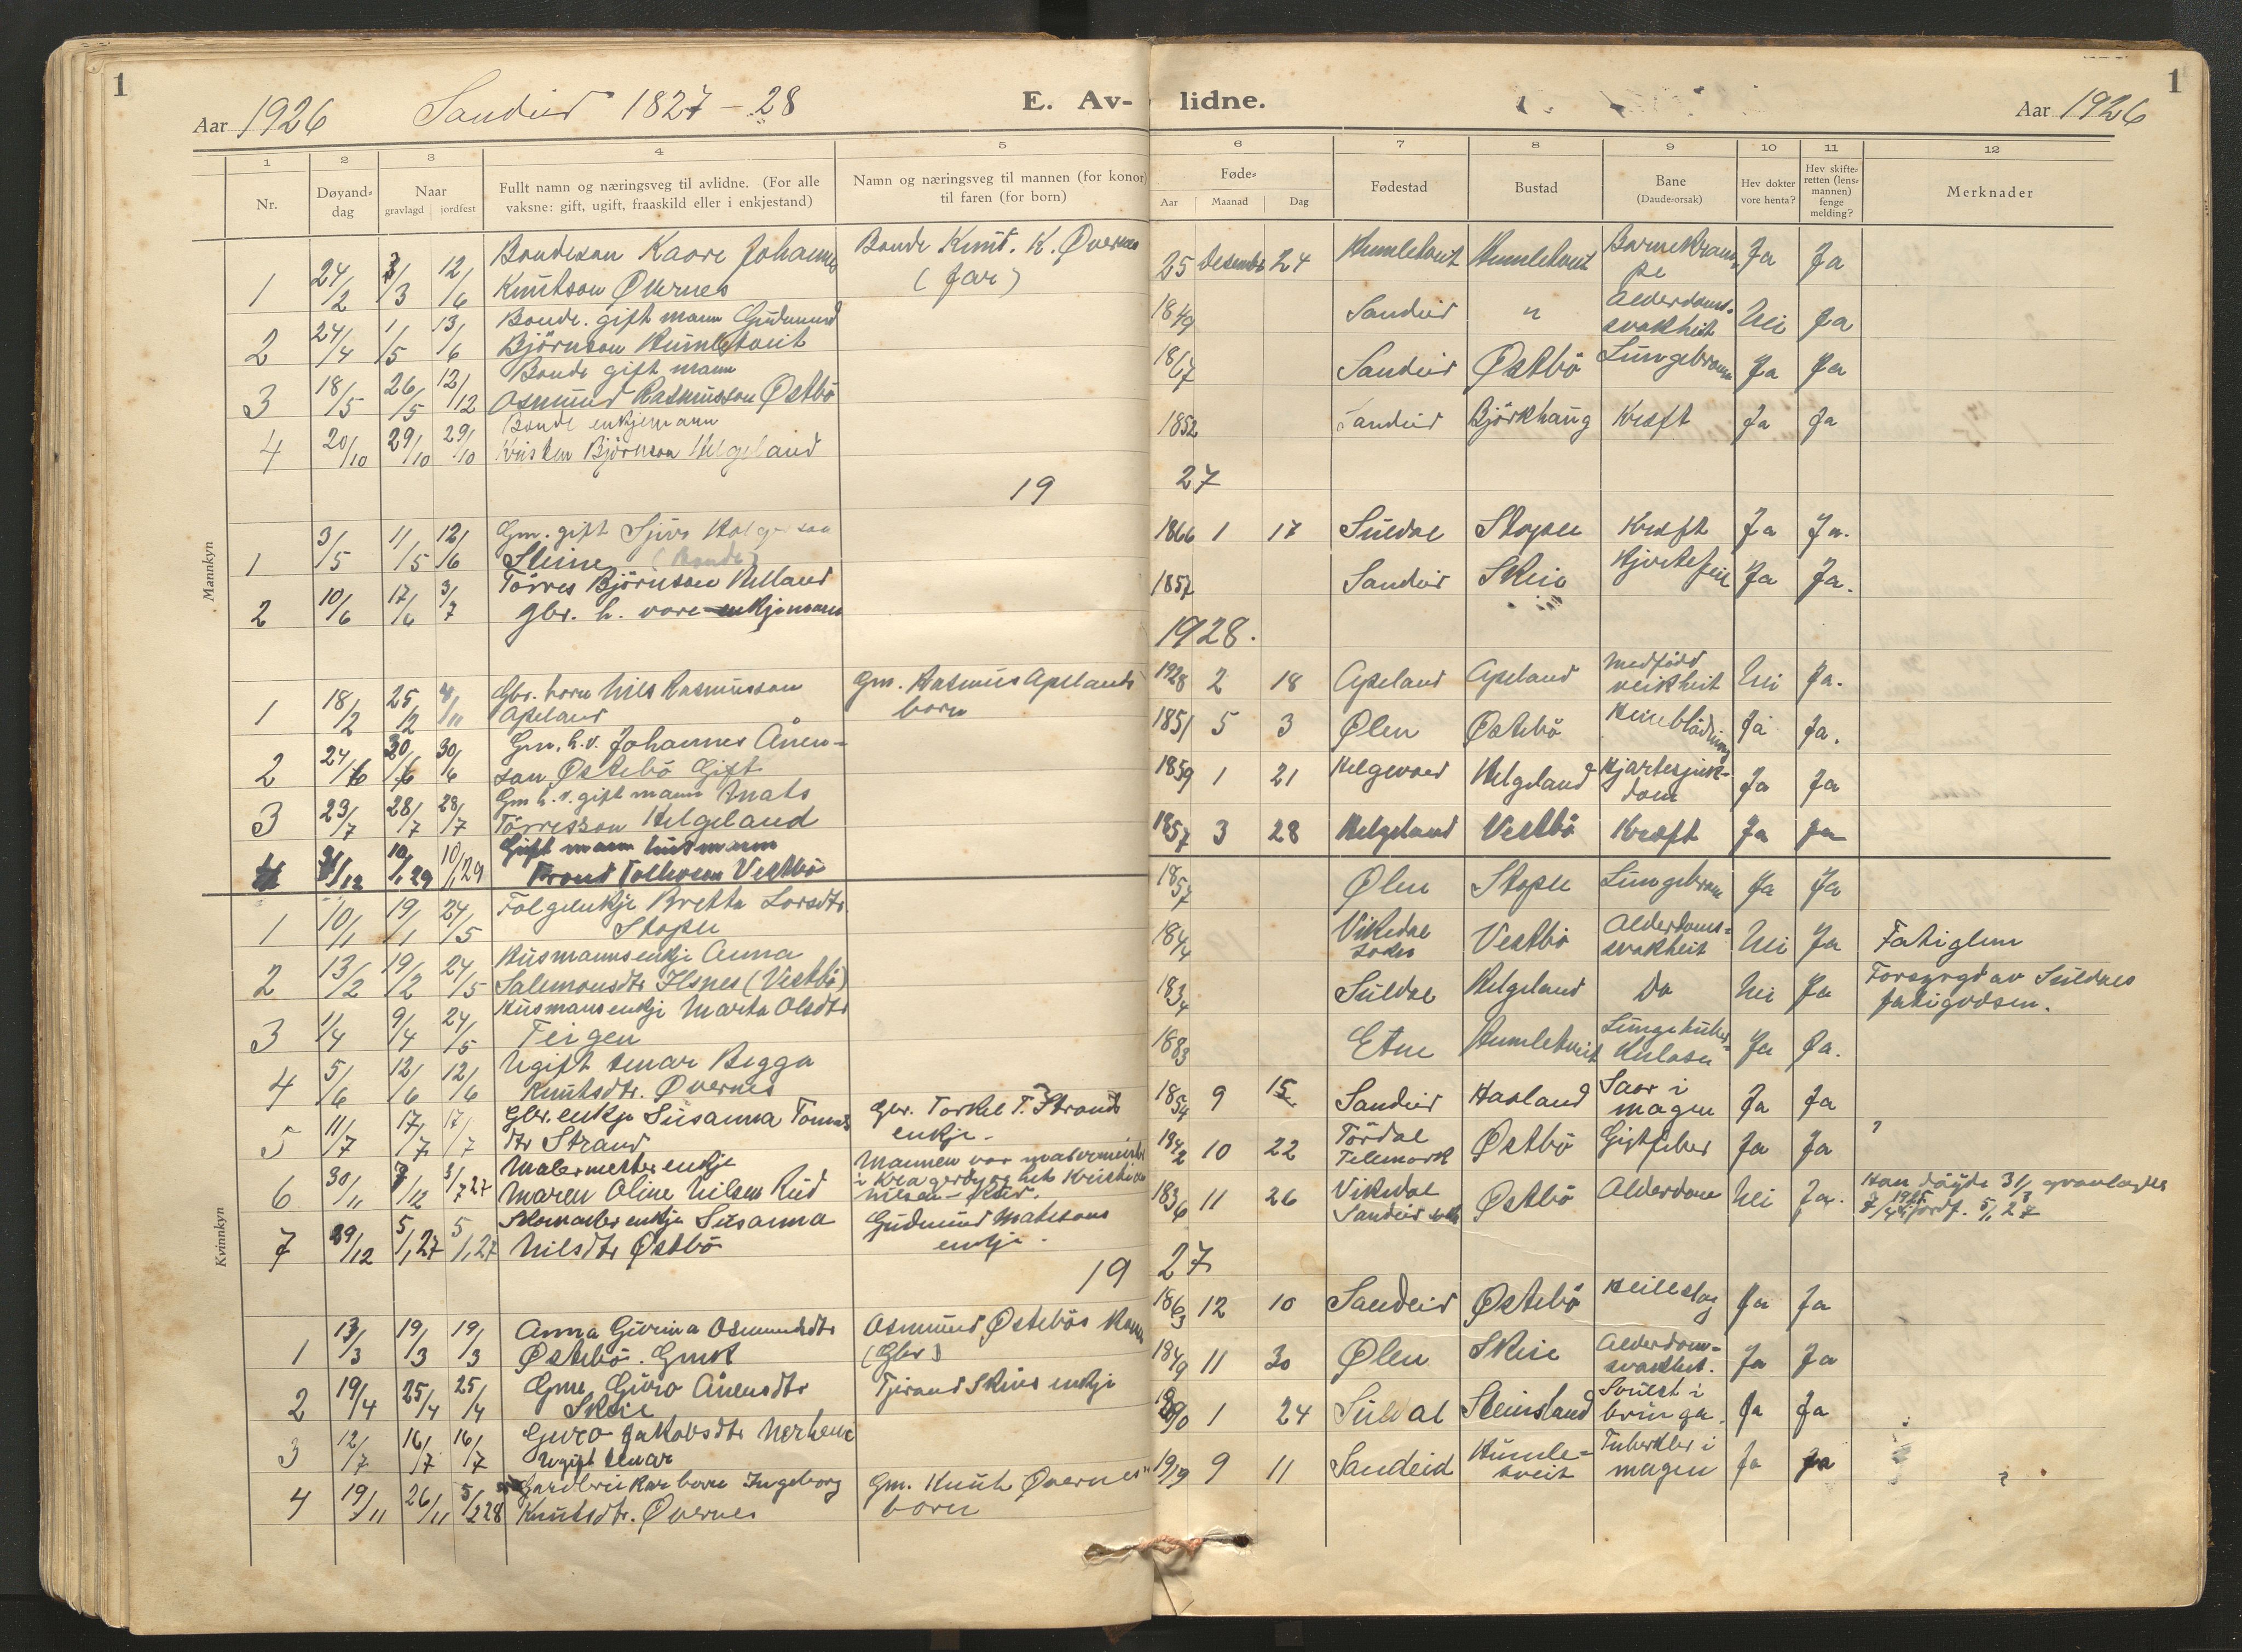 1
Aar 1926 Sandeid 1827-28 E. Av-
lidne. Aar 1926
1
1 2 3 4 5 6 7 8 9 10 11 12
Nr. Døyand-dag Naar gravlagd jordfest Fullt namn og næringsveg til avlidne. (For alle vaksne: gift, ugift, fraaskild eller i enkjestand) Namn og næringsveg til mannen (for konor) til faren (for born) Føde- Aar Maanad Dag Fødestad Bustad Bane (Daude-orsak) Hev dokter vore henta? Hev skifteretten (lensmannen) fenge melding? Merknader
Mannkyn
1 24/2 7/3 12/6 Bondeson Kaare Johannes Bonde Knut. K. Øvernes 25 Desember 24 Humletveit Humletveit Barnekram- Ja Ja
Knutson Øvernes (far) pe
2 24/4 1/5 13/6 Bonde. gift mann Gudmund 1849 Sandeid " Alderdoms- Nei Ja
Björnson Humletveit svakheit
3 18/5 26/5 12/12 Bonde gift mann 1867 Sandeid Østbö Lungebrann Ja Ja
Osmund Rasmusson Østbö
4 20/10 29/10 29/10 Bonde enkjemann 1852 Sandeid Björkhaug Kræft Ja Ja
Kristen Björnson Helgeland
19 27
1 3/5 11/5 12/6 Gm. gift Sjurs Holgerson 1866 1 17 Suldal Stople Kræft Ja Ja.
(Bonde)
2 10/6 17/6 3/7 Törres Björnson Helland 1857 Sandeid Skeie Hjertefeil Ja Ja.
gbr. h. vore enkjemann
1928.
1 18/2 25/2 4/11 Gbr. born Nils Rasmusson Gm. Rasmus Apelands 1928 2 18 Apeland Apeland Medfödd Nei Ja.
Apeland born veikheit
2 24/6 30/6 30/6 Gm. h.v. Johannes Ånen- 1851 5 3 Ølen Østebö Heineblödning Ja Ja.
son Østebö Gift
3 23/7 28/7 28/7 Gm h.v. gift mann Mats 1859 1 21 Helgeland Hjartesjuk- Ja Ja
Törresson Helgeland dom
4 31/12 10/1 29 10/1 29 Gift mann husmann 1857 3 28 Helgeland Vestbö Kræft Ja Ja
Trond Tollevsen Vestbö
Kvinnkyn
1 10/1 19/1 24/5 Folgeenkje Bretta Larsdtr. 1857 Ølen Stople Lungebran Ja Ja
Stople
2 13/2 19/2 24/5 Husmannsenkje Anna 1844 Vikedal Vestbö Alderdoms- Nei Ja Fatiglem
Salemonsdtr Ilsnes (Vestbö) sokn svakheit
3 1/4 9/4 24/5 Husmansenkje Marta Olsdtr 1834 Suldal Helgeland Do Nei Ja Forsyrgd av Suldals
Teigen fatigvæsen.
4 5/6 12/6 12/6 Ugift tenar Begga 1883 Etne Humletveit Lungetuber- Ja Ja.
Knutsdtr. Øvernes kulose
5 11/7 17/7 17/7 Gbr. enkje Susanna Tonnes Gbr. Torkel T. Strands 1854 9 15 Sandeid Haaland Saar i Ja Ja
dtr Strand enkje - magen
6 30/11 7/12 3/7 27 Malermester enkje Mannen var malermeister 1842 10 22 Tördal Østbö Gigtfeber Ja Ja ?
Maren Oline Nilsen Rud i Kragerö og het Kristian Telemark
Nilsen - Rud.
7 29/12 5/1 27 5/1 27 enkje Susanna Gudmund Matesons 1836 11 26 Vikedal Østbö Alderdom Nei Ja. Han döyde 31/3 gravlagdes
Nilsdtr Østbö enkje. Sandeid sokn 7/4 1925 jordf. 5/1 27
19 27
1 13/3 19/3 19/3 Anna Gurina Osmundsdtr Osmund Østebös Kona 1863 12 10 Sandeid Østebö Heilslag Ja Ja
Østebö. Gmk (Gbr)
2 19/4 25/4 25/4 Gme Guro Ånensdtr Tjerand Skeies enkje 1849 11 30 Ølen Skeie Alderdom- Ja Ja
Skeie svakheit.
3 12/7 16/7 16/7 Guro Jakobsdtr Nerheim 1890 1 24 Suldal Steinsland Svulst i Ja Ja
Ugift tenar bringa.
4 19/11 26/11 5/2 28 Gardbrukar born Ingeborg Gm. Knut Øvernes" 1919 9 11 Sandeid Humle- Tuberkler i Ja Ja ?
Knutsdtr. Øvernes born tveit magen